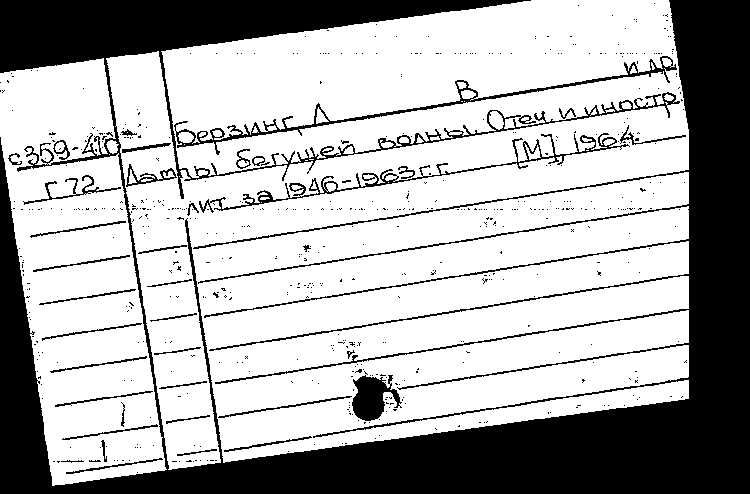 с359-410 Берзинг Л В и др
Г72 Лампы бегущей волны. Отеч. и иностр
лит. за 1946-1963 г.г. [М.], 1964.